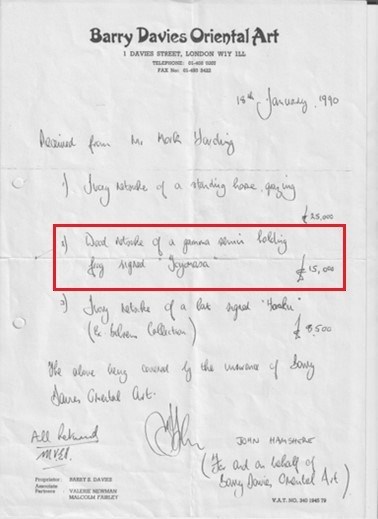 Barry Davies Oriental Art
1 DAVIES STREET, LONDON W1Y 1LL
TELEPHONE: 01-408
FAX No: 01-493
18th January, 1990
Received from Mr Mark Harding
1) Ivory netsuke of a standing horse, grazing
£25,000
2) Wood netsuke of a gamma sennin holding
signed "Toyomasa"
£15,000
3) Ivory netsuke of a signed
(Ex Collection)
£8,500
The above being covered by the insurance of Barry
Davies Oriental Art.
All Returned
JOHN
(For and on behalf of
Barry Davies Oriental Art)
Proprietor: BARRY S. DAVIES
Associate
Partners: VALERIE NEWMAN
MALCOLM FAIRLEY
V.A.T. NO.